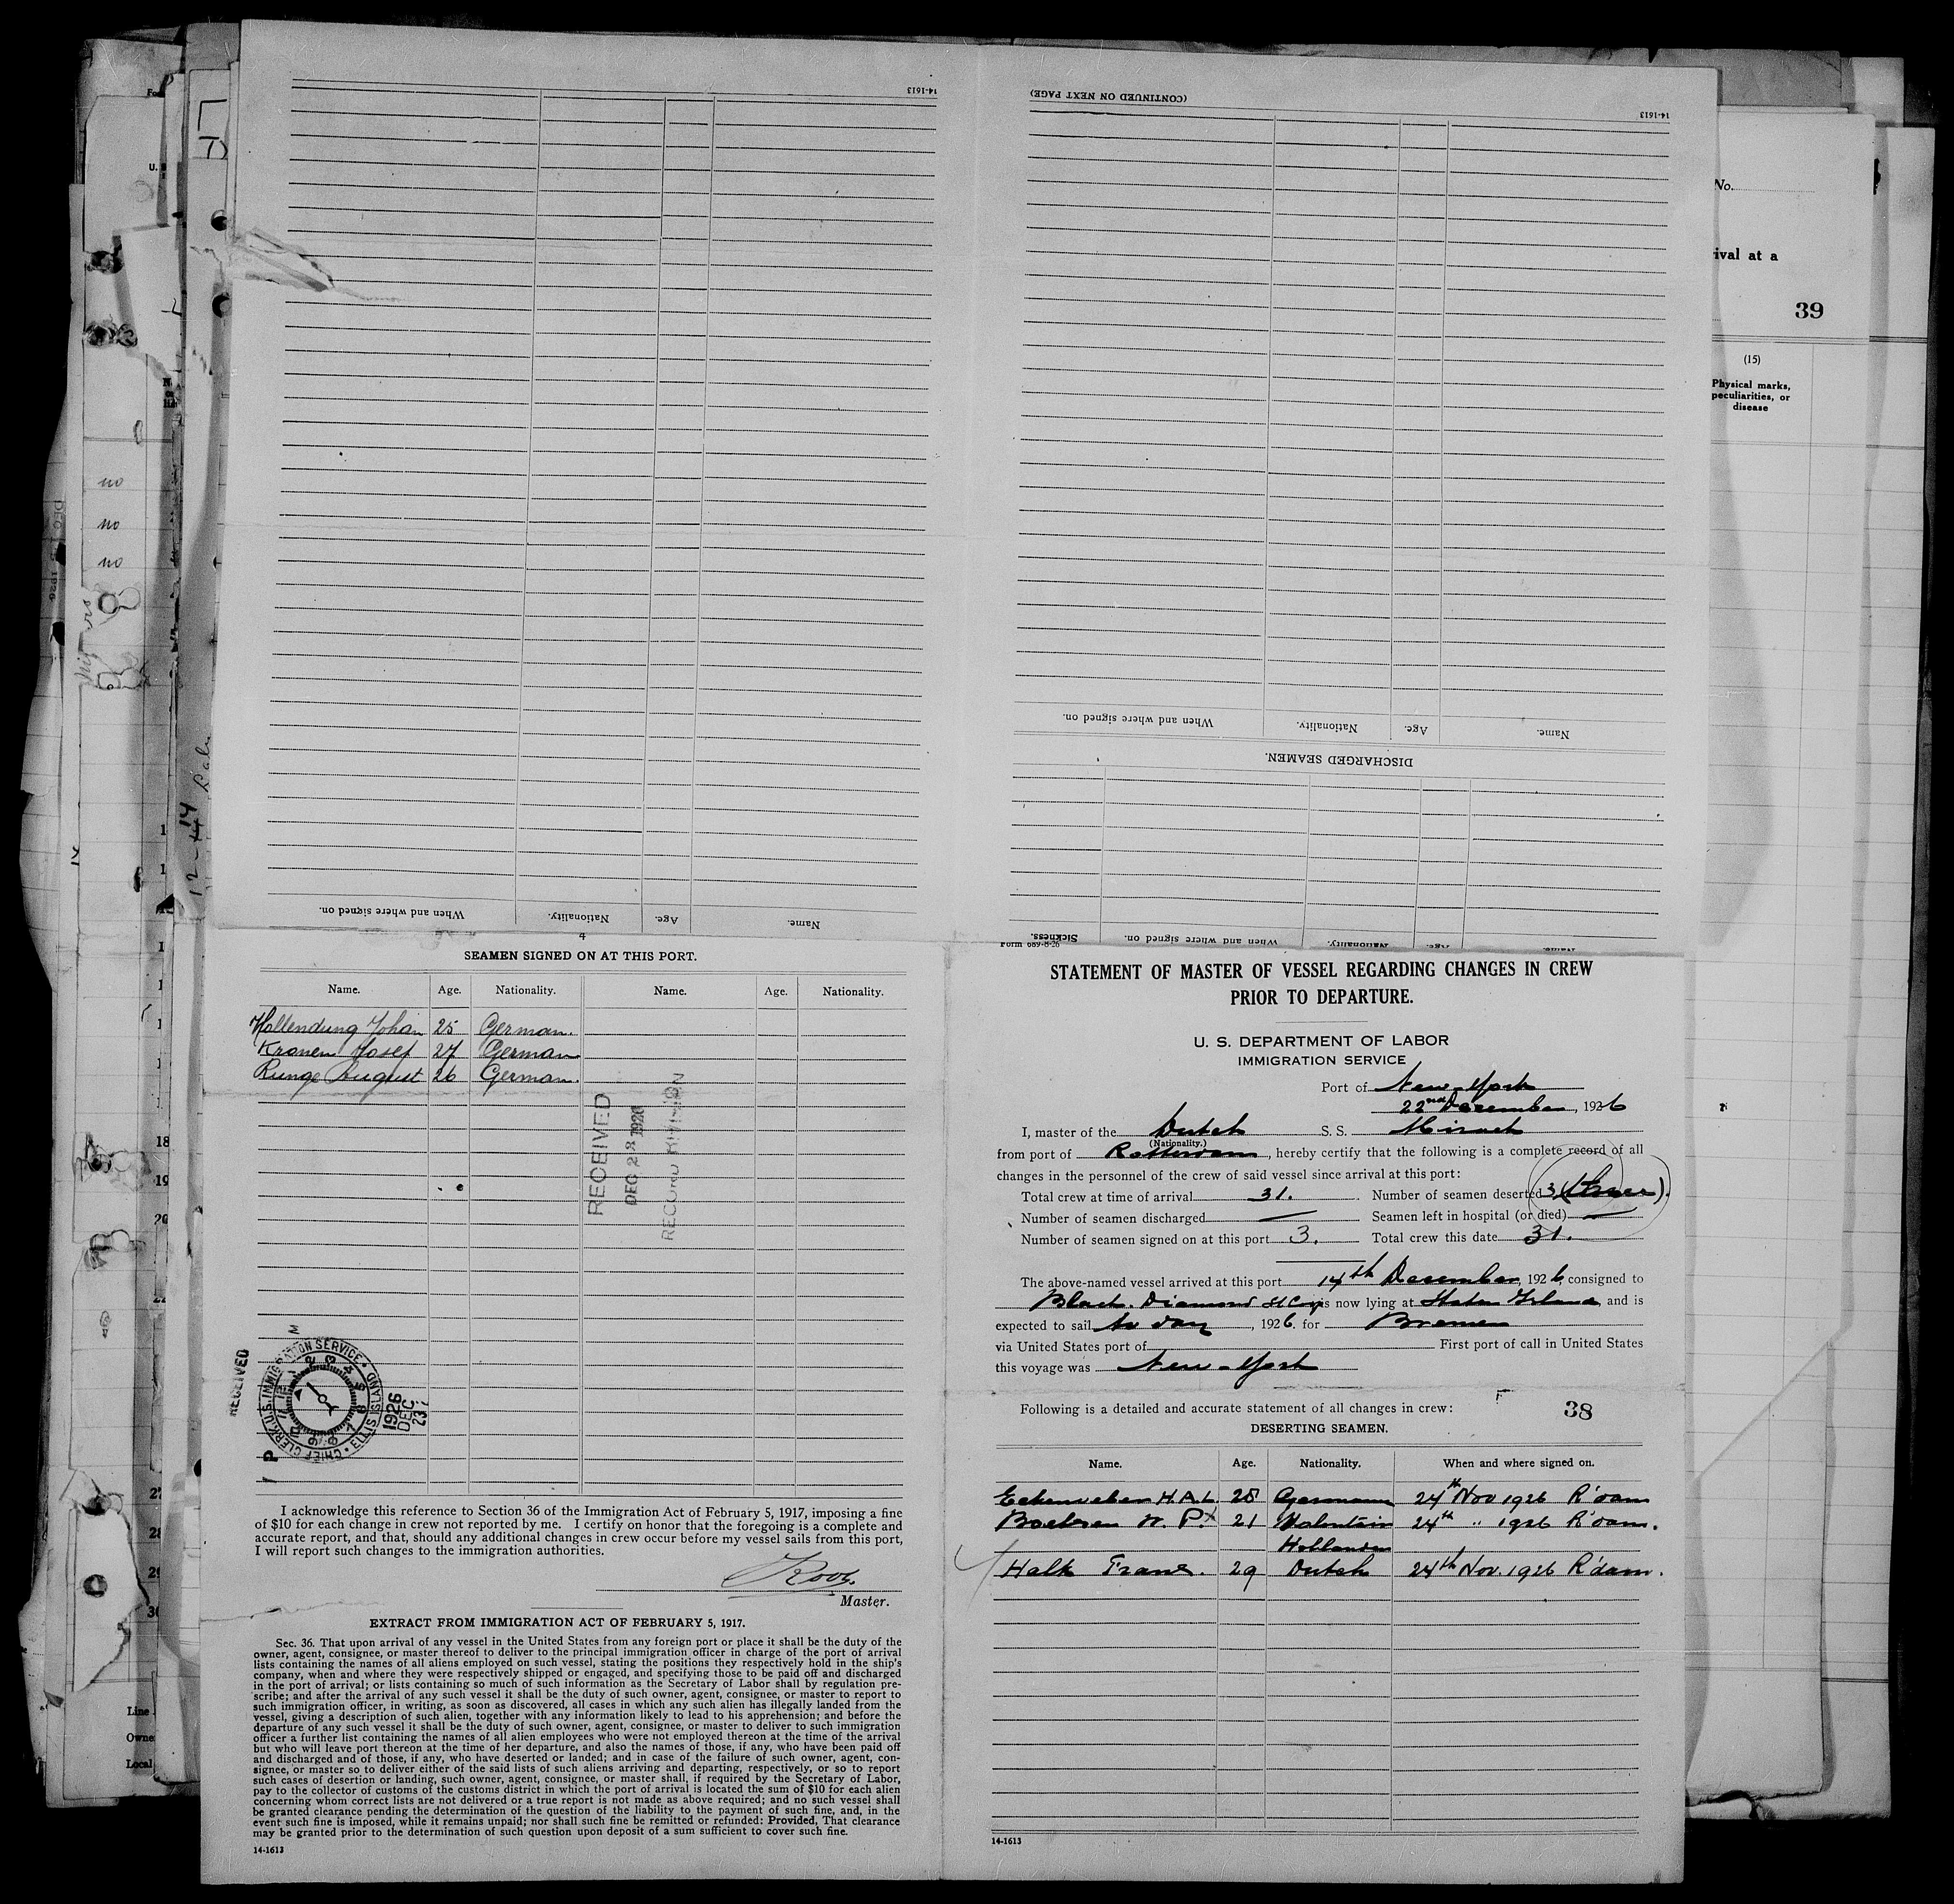 14-1613
(CONTINUED ON NEXT PAGE)
14-1613
No.
ival at a
39
(15)
Physical marks,
peculiarities, or
disease
no
no
no
When and where signed on.
Nationality.
Age.
Name.
DISCHARGED SEAMEN.
When and where signed on.
Nationality.
Age.
Name.
Sickness.
When and where signed on.
Nationality.
Age.
Name.
4
SEAMEN SIGNED ON AT THIS PORT.
Name. Age. Nationality. Name. Age. Nationality.
Hollendung Johan 25 German.
Kronen Josef 27 German
Runge August 26 German.
RECEIVED
DEC 28 1926
RECORD DIVISION
RECEIVED
CHIEF CLERK U.S. IMMIGRATION SERVICE • ELLIS ISLAND •
1926
DEC
23
I acknowledge this reference to Section 36 of the Immigration Act of February 5, 1917, imposing a fine
of $10 for each change in crew not reported by me. I certify on honor that the foregoing is a complete and
accurate report, and that, should any additional changes in crew occur before my vessel sails from this port,
I will report such changes to the immigration authorities.
Master.
EXTRACT FROM IMMIGRATION ACT OF FEBRUARY 5, 1917.
Sec. 36. That upon arrival of any vessel in the United States from any foreign port or place it shall be the duty of the
owner, agent, consignee, or master thereof to deliver to the principal immigration officer in charge of the port of arrival
lists containing the names of all aliens employed on such vessel, stating the positions they respectively hold in the ship's
company, when and where they were respectively shipped or engaged, and specifying those to be paid off and discharged
in the port of arrival; or lists containing so much of such information as the Secretary of Labor shall by regulation pre-
scribe; and after the arrival of any such vessel it shall be the duty of such owner, agent, consignee, or master to report to
such immigration officer, in writing, as soon as discovered, all cases in which any such alien has illegally landed from the
vessel, giving a description of such alien, together with any information likely to lead to his apprehension; and before the
departure of any such vessel it shall be the duty of such owner, agent, consignee, or master to deliver to such immigration
officer a further list containing the names of all alien employees who were not employed thereon at the time of the arrival
but who will leave port thereon at the time of her departure, and also the names of those, if any, who have been paid off
and discharged and of those, if any, who have deserted or landed; and in case of the failure of such owner, agent, con-
signee, or master so to deliver either of the said lists of such aliens arriving and departing, respectively, or so to report
such cases of desertion or landing, such owner, agent, consignee, or master shall, if required by the Secretary of Labor,
pay to the collector of customs of the customs district in which the port of arrival is located the sum of $10 for each alien
concerning whom correct lists are not delivered or a true report is not made as above required; and no such vessel shall
be granted clearance pending the determination of the question of the liability to the payment of such fine, and, in the
event such fine is imposed, while it remains unpaid; nor shall such fine be remitted or refunded: Provided, That clearance
may be granted prior to the determination of such question upon deposit of a sum sufficient to cover such fine.
14-1613
Form 689-8-26
STATEMENT OF MASTER OF VESSEL REGARDING CHANGES IN CREW
PRIOR TO DEPARTURE.
U. S. DEPARTMENT OF LABOR
IMMIGRATION SERVICE
Port of New-York
22nd December, 1926
I, master of the Dutch S. S. Mirach
(Nationality.)
from port of Rotterdam, hereby certify that the following is a complete record of all
changes in the personnel of the crew of said vessel since arrival at this port:
Total crew at time of arrival 31. Number of seamen deserted 3 (three).
Number of seamen discharged — Seamen left in hospital (or died) —
Number of seamen signed on at this port 3. Total crew this date 31.
The above-named vessel arrived at this port 14th December, 1926, consigned to
Black Diamond is now lying at Staten Island, and is
expected to sail to day, 1926. for Bremen
via United States port of First port of call in United States
this voyage was New-York
Following is a detailed and accurate statement of all changes in crew: 38
DESERTING SEAMEN.
Name. Age. Nationality. When and where signed on.
H.A.L. 28 24th Nov 1926 R'dam
W. P. 21 24th " 1926 R'dam.
Hollander
Halk Frans. 29 Dutch 24th Nov. 1926 R'dam.
14-1613